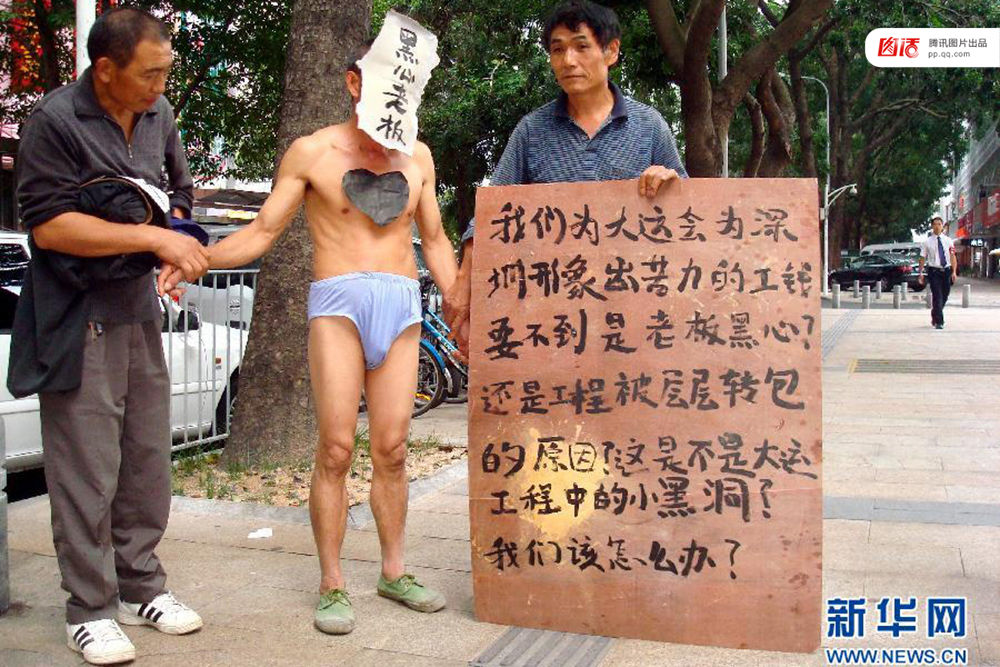 黑心老板
图话
腾讯图片出品
pp.qq.com
我们为大运会为深
圳形象出苦力的工钱
要不到是老板黑心?
还是工程被层层转包
的原因?这是不是大运
工程中的小黑洞?
我们该怎么办?
新华网
WWW.NEWS.CN